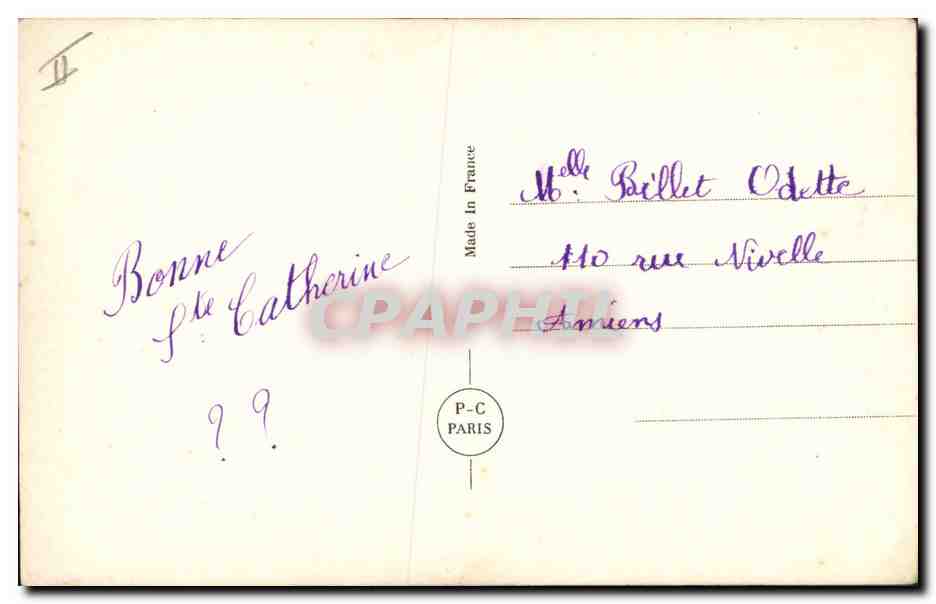 II
Bonne
Ste Catherine
? ?
Made In France
P-C
PARIS
Melle. Billet Odette
110 rue Nivelle
Amiens
CPAPHIL